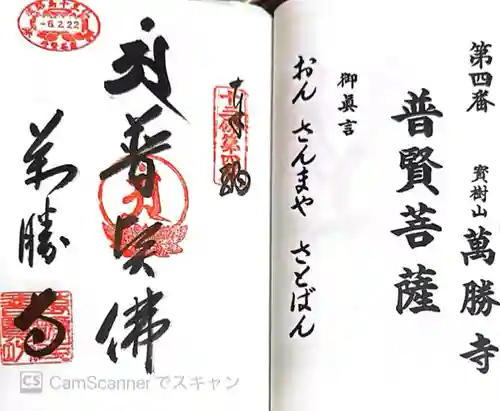 第四番 寳樹山 萬勝寺
普賢菩薩
御眞言
おん さんまや さとばん
奉納
普賢佛
萬勝寺
-6.2.22
CS CamScannerでスキャン